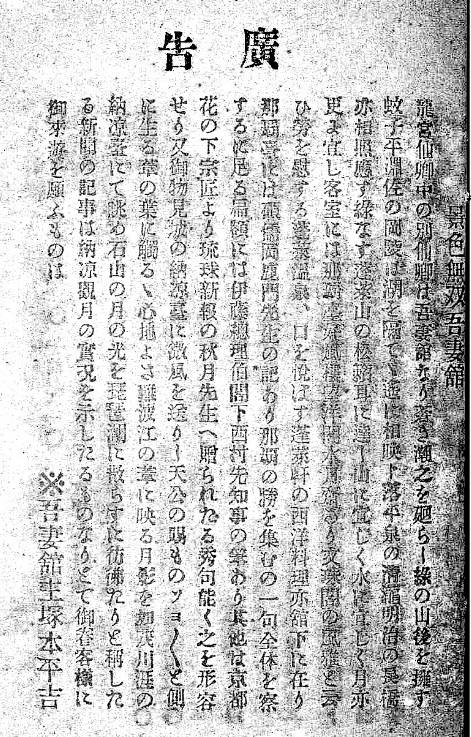 廣告
景色無双吾妻舘
龍宮仙郷中の別仙郷は吾妻舘なり蒼き潮之を廻らし綠の山後を擁す
蚊子平淵佐の岡陵は湖を隔てゝ遙に相映し落平泉の清瀧明治の長橋
亦相照應す綠なす蓬萊山の松 に宜しく山に宜しく水に宜しく月亦
更に宜し客室には那覇臺 樓 洋閣水 文珠閣の風雅と云
ひ勞を慰する蓬萊温泉、口を悅ばす蓬萊軒の西洋料理亦舘下に在り
那覇臺には碩儒岡鹿門先生の記あり那覇の勝を集むの一句全体を察
するに足る扁額には伊藤總理伯閣下西村先知事の筆あり其他は京都
花の下宗匠より琉球新報の秋月先生へ贈られたる秀句能く之を形容
せり又御物見城の納凉臺に微風を送りし天公の賜ものソヨ〱と側
に生る葦の葉に觸るゝ心地よさ難波江の葦に映る月影を加茂川涯の
納凉臺にて眺め石山の月の光を琵琶湖に散らすに彷彿たりと稱した
る新聞の記事は納凉觀月の實況を示したるものなりとて御客樣に
御來遊を願ふものは
※吾妻舘主塚本平吉